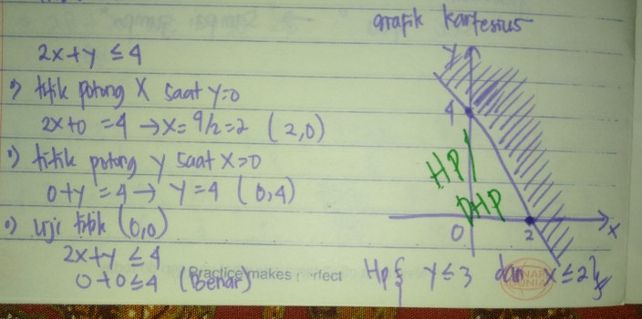 grafik kartesius
2x+y ≤4
titik potong X saat y=0
2x+0 =4 →x= 4/2=2 (2,0)
titik potong y saat x=0
0+y =4 → y=4 (0,4)
uji titik (0,0)
2x+y ≤4
0+0≤4 (Benar)
Practice makes rfect
y
4
HP
HP
0
2
x
Hp { y≤3 dan x≤2 }